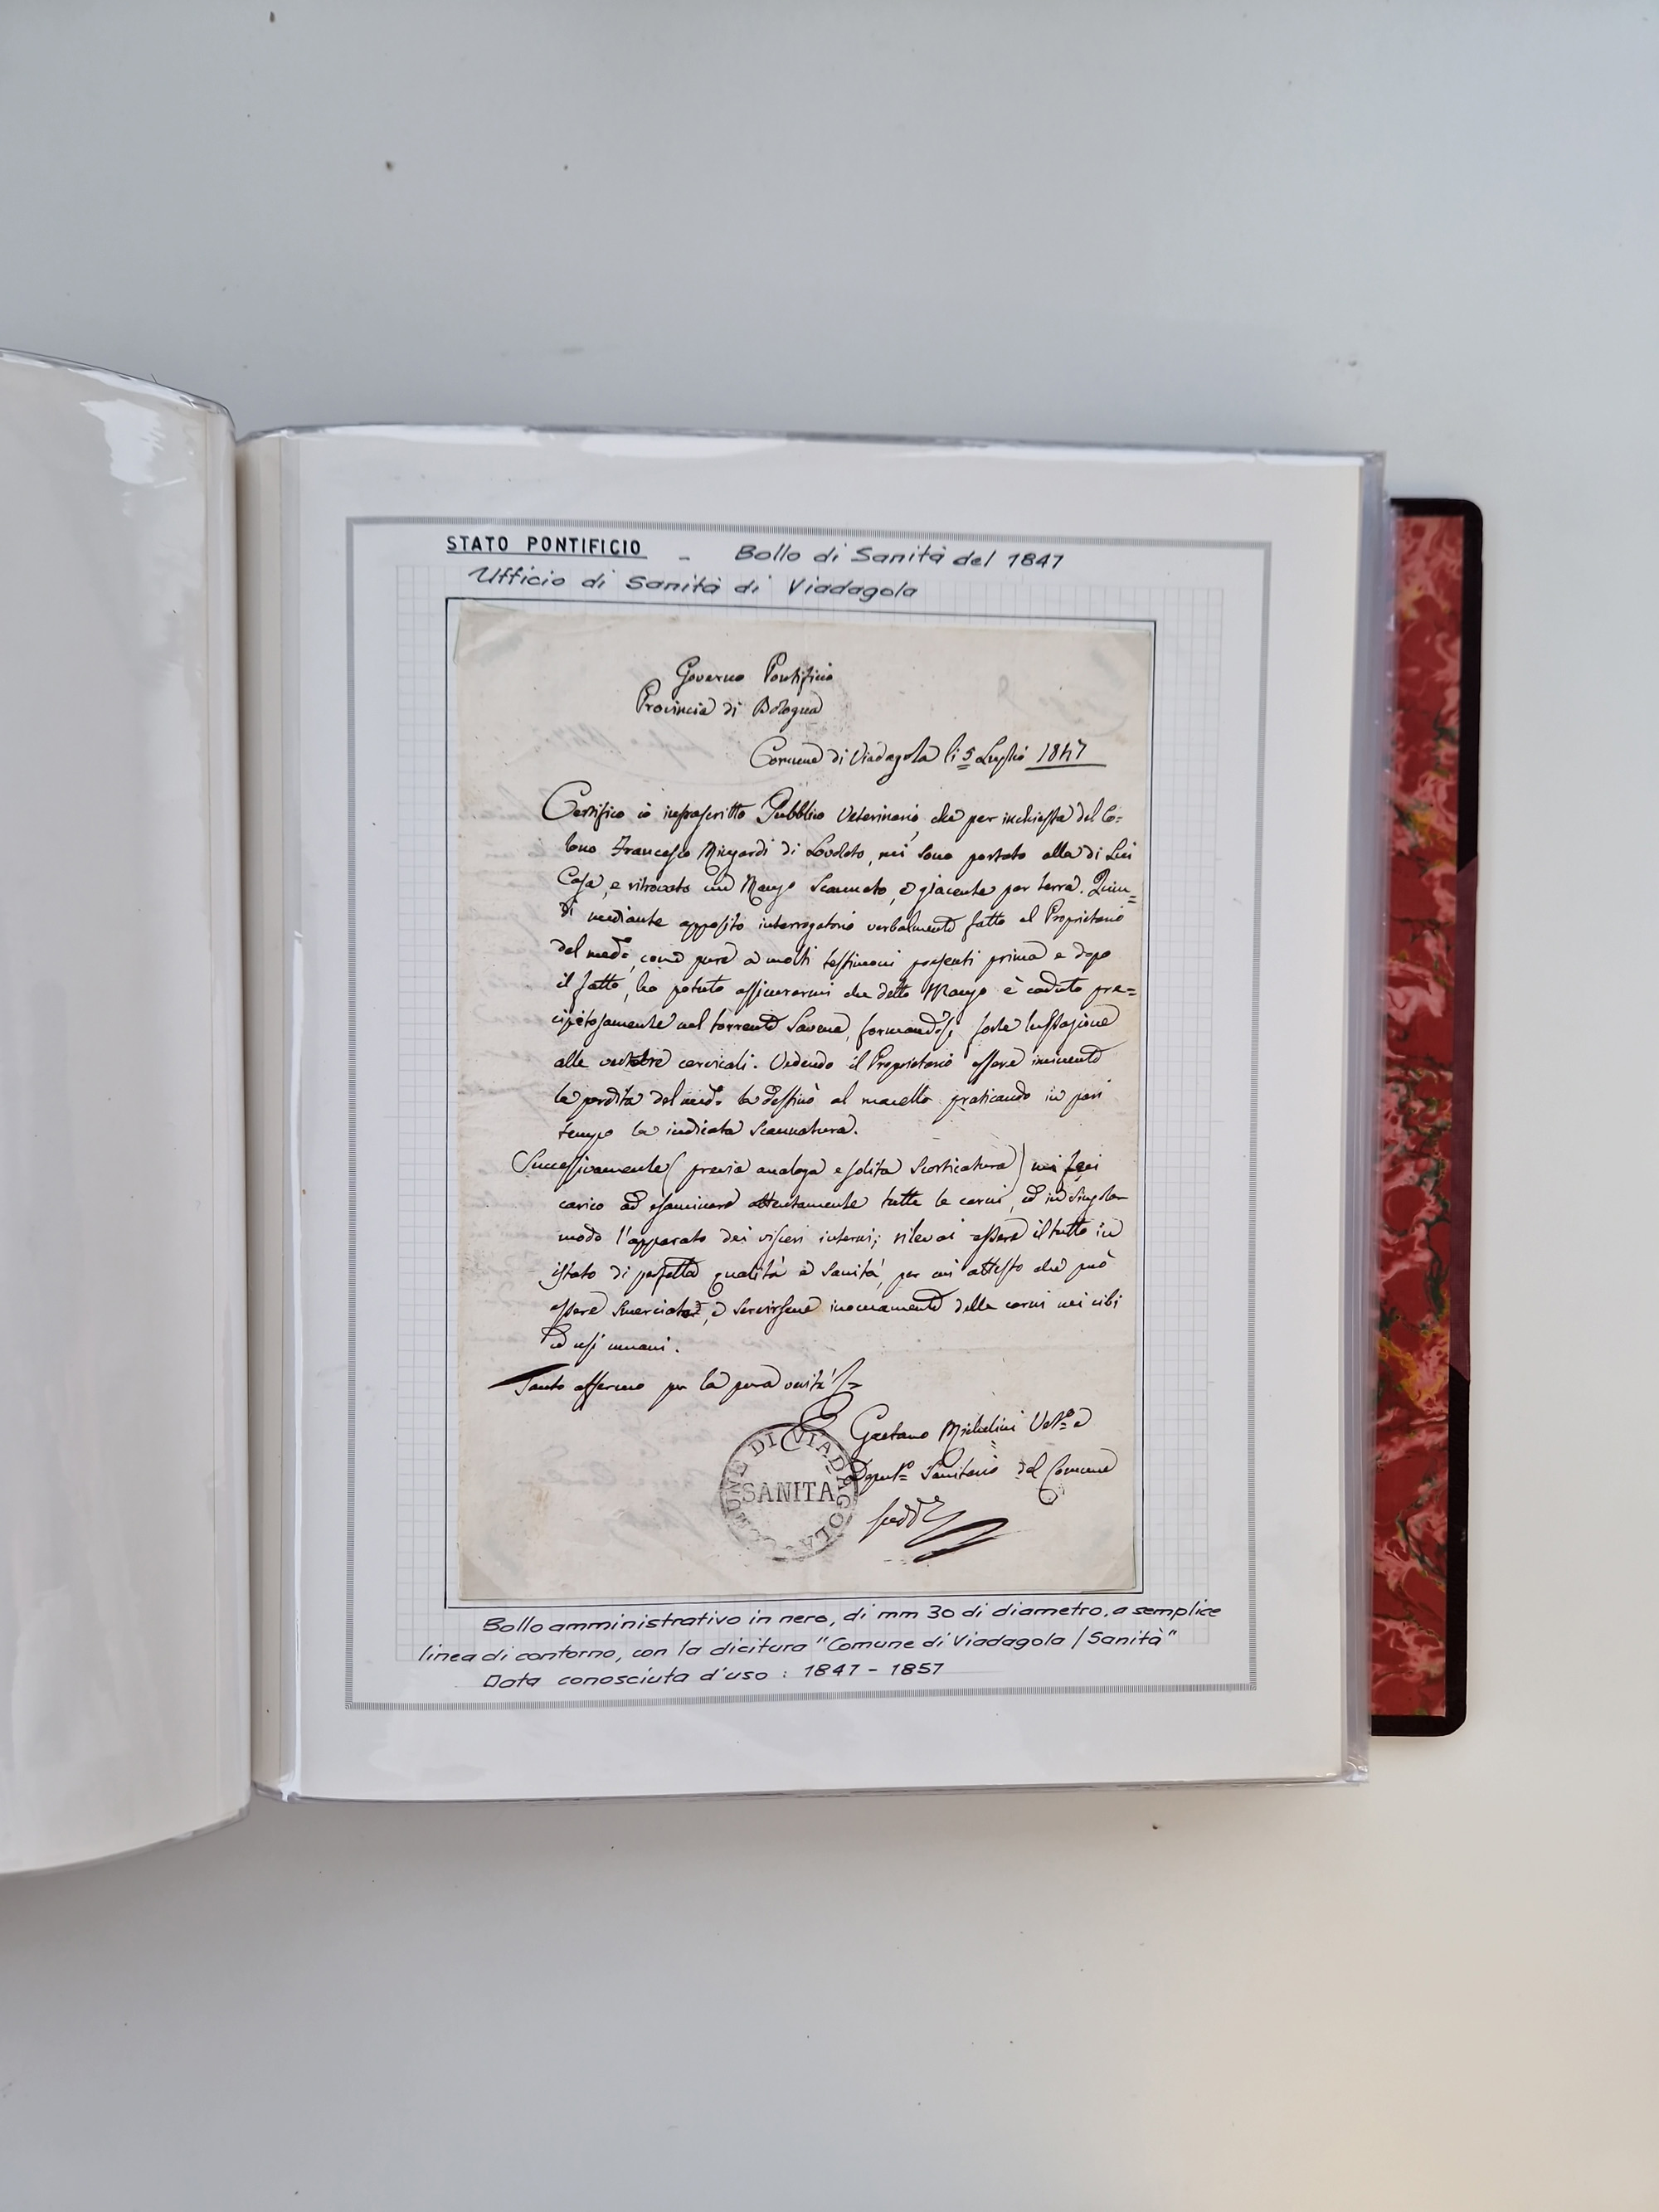 STATO PONTIFICIO - Bollo di Sanità del 1847
Ufficio di Sanità di Viadagola
Governo Pontificio
Provincia di Bologna
Comune di Viadagola li 5 Luglio 1847
Certifico io infrascritto Pubblico Veterinario, che per inchiesta del Co=
lono Francesco Mingardi di Lovoleto, mi sono portato alla di Lui
Casa, e ritrovato un Manzo Scannato, e giacente per terra. Quin=
di mediante apposito interrogatorio verbalmente fatto al Proprietario
del med.o, come pure a molti testimoni presenti prima e dopo
il fatto, ho potuto assicurarmi che detto Manzo è caduto pre=
cipitosamente nel torrente Savena, formandosi forte lussazione
alle vertebre cervicali. Vedendo il Proprietario essere imminente
la perdita del med.o lo destinò al macello praticando in pari
tempo la indicata Scannatura.
Successivamente (previa analoga e solita Scorticatura) mi feci
carico ad esaminare attentamente tutte le carni, ed in singolar
modo l'apparato dei visceri interni; rilevai essere il tutto in
istato di perfetta qualità e Sanità, per cui attesto che può
essere smerciato, e servirsene innocuamente delle carni nei cibi
ed usi umani.
Tanto affermo per la pura verità
Gaetano Michelini Vet.o e
Deput.o Sanitario del Comune
COMUNE DI VIADAGOLA
SANITÀ
Bollo amministrativo in nero, di mm 30 di diametro, a semplice
linea di contorno, con la dicitura "Comune di Viadagola / Sanità"
Data conosciuta d'uso : 1847 - 1857